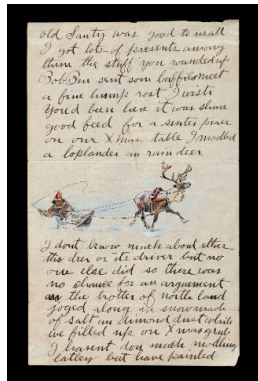 old Santy was good to us all
I got lots of presents among
them the stuff you rounded up
Bob Ban sent som buffilo meet
a fine hump rost I wish
youd been here it was shure
good feed for a senter peace
on our Xmas table I modled
a loplander an raindeer
I dont know much about ether
the deer or its driver but no
one else did so there was
no chance for an argument
as the trotter of north land
joged along in snow made
of salt an dimond dust while
we filled up on Xmas grub
I havent don much modling
latley but have painted